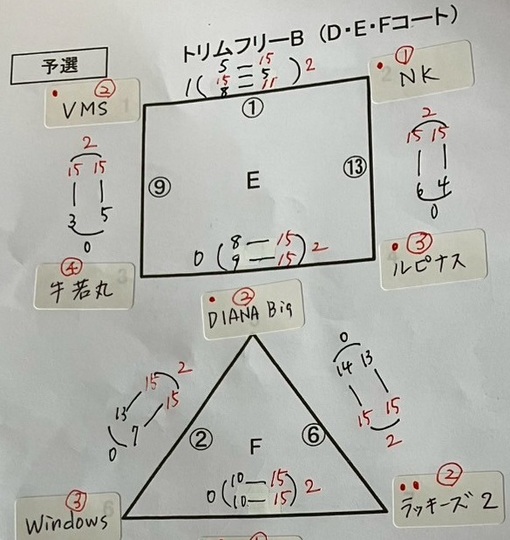 トリムフリーB（D・E・Fコート）
予選
② VMS
1 ( 5 — 15
15 — 5
8 — 11 ) 2
① NK
①
2
15 15
3 5
0
⑨
E
⑬
2
15 15
6 4
0
④ 牛若丸
0 ( 8 — 15
9 — 15 ) 2
③ ルピナス
DIANA Big
2
15 15
13 7
0
②
F
⑥
0
14 13
15 15
2
③ Windows
0 ( 10 — 15
10 — 15 ) 2
② ラッキーズ2